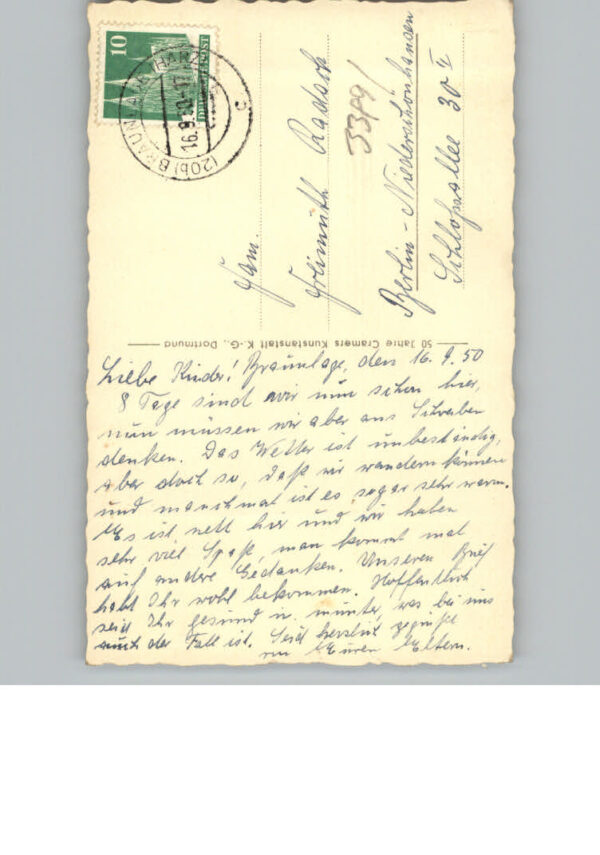 10
DEUTSCHE POST
(20b) BRAUNLAGE HARZ
16.9.50-17
c
3349/
Fam.
Helmuth Radsch
Berlin-Niederschönhausen
Schloßallee 30 I
50 Jahre Cramers Kunstanstalt K.-G., Dortmund
Liebe Kinder! Braunlage, den 16.9.50
8 Tage sind wir nun schon hier,
nun müssen wir aber ans Schreiben
denken. Das Wetter ist unbeständig,
aber doch so, daß wir wandern können
und manchmal ist es sogar sehr warm.
Es ist nett hier und wir haben
sehr viel Spaß, man kommt mal
auf andre Gedanken. Unseren Brief
habt Ihr wohl bekommen. Hoffentlich
seid Ihr gesund u. munter, was bei uns
auch der Fall ist. Seid herzlich gegrüßt
von Euren Eltern.